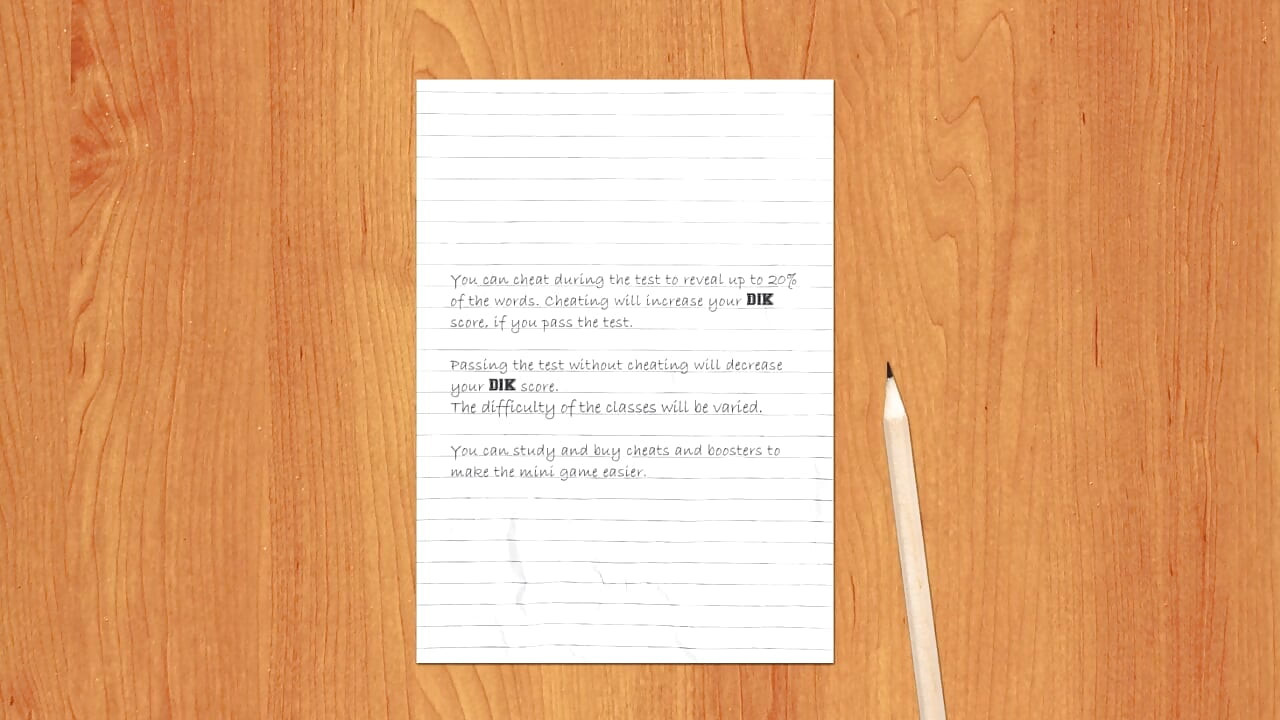 You can cheat during the test to reveal up to 20%
of the words. Cheating will increase your DIK
score, if you pass the test.
Passing the test without cheating will decrease
your DIK score.
The difficulty of the classes will be varied.
You can study and buy cheats and boosters to
make the mini game easier.